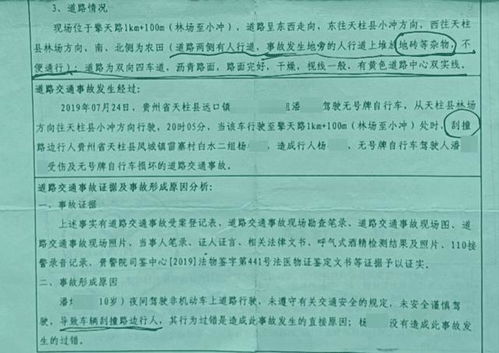 3、道路情况
现场位于擎天路1km+100m(林场至小冲),道路呈东西走向,东往天柱县小冲方向,西往天柱
县林场方向,南、北侧为农田(道路两侧有人行道,事故发生地旁的人行道上堆放地砖等杂物,不
便通行);道路为双向四车道,沥青路面,路面完好,干燥,视线一般,有黄色道路中心双实线。
道路交通事故发生经过:
2019年07月24日,贵州省天柱县远口镇 组潘 驾驶无号牌自行车,从天柱县林场
方向往天柱县小冲方向行驶,20时05分,当该车行驶至擎天路1km+100m(林场至小冲)处时,刮撞
路边行人贵州省天柱县凤城镇雷寨村白水二组杨 ,造成行人杨 、无号牌自行车驾驶人潘
受伤及无号牌自行车损坏的道路交通事故。
道路交通事故证据及事故形成原因分析:
一、事故证据
上述事实有道路交通事故受案登记表、道路交通事故现场勘查笔录、道路交通事故现场图、道
路交通事故现场照片、当事人笔录、证人证言、相关法律文书、呼气式酒精检测结果及照片、110接
警录音记录、贵警院司鉴中心[2019]法物鉴字第441号法医物证鉴定文书等证据予以证实。
二、事故形成原因
潘 10岁)夜间驾驶非机动车上道路行驶,未遵守有关交通安全的规定,未安全谨慎驾
驶,导致车辆刮撞路边行人,其行为过错是造成此事故发生的直接原因;杨 没有造成此事故发
生的过错。